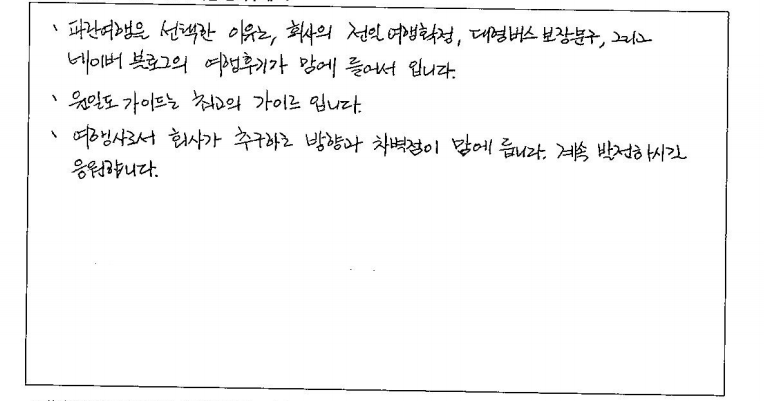 、파란여행을 선택한 이유는, 회사의 전원여행확정, 대형버스보장문구, 그리고
네이버 블로그의 여행후기가 맘에 들어서 입니다.
、원일도 가이드는 최고의 가이드 입니다.
、여행사로서 회사가 추구하는 방향과 차별점이 맘에 듭니다. 계속 발전하시길
응원합니다.